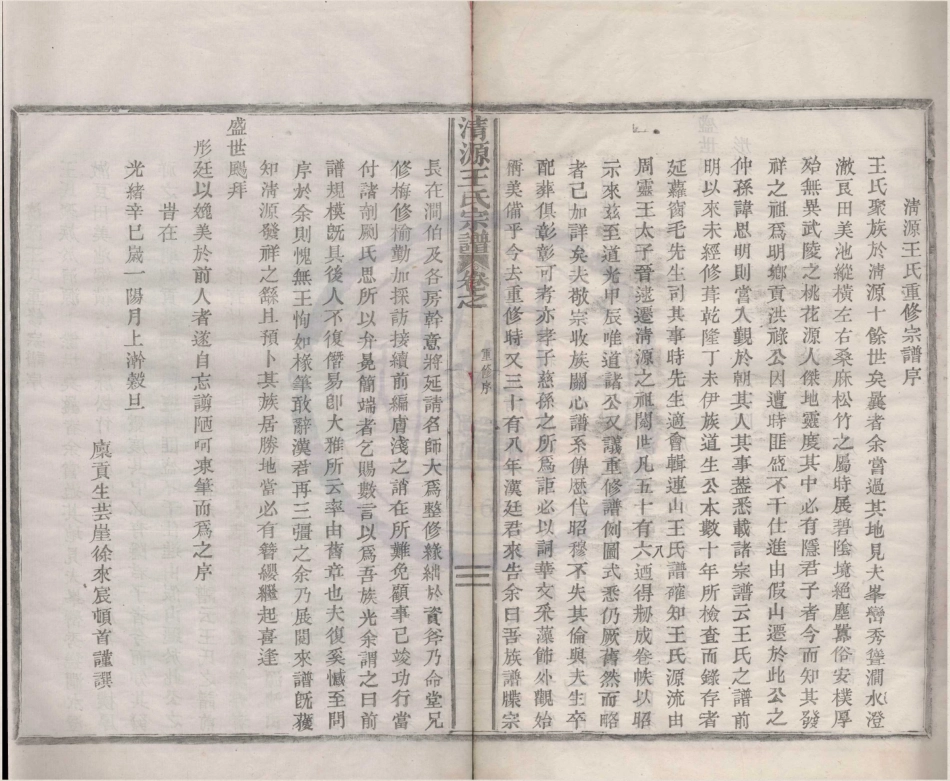 清源王氏重修宗譜序
王氏聚族於清源十餘世矣曩者余嘗過其地見夫峯巒秀聳澗水澄
澈良田美池縱橫左右桑麻松竹之屬時展碧陰境絕塵囂俗安樸厚
殆無異武陵之桃花源人傑地靈度其中必有隱君子者今而知其發
祥之祖爲明鄉貢洪祿公因遭時匪盛不干仕進由假山遷於此公之
仲孫諱思明則嘗入覲於朝其人其事葢悉載諸宗譜云王氏之譜前
明以來未經修葺乾隆丁未伊族道生公本數十年所檢查而錄存者
延蕭窗毛先生司其事時先生適會輯連山王氏譜確知王氏源流由
周靈王太子晉遠遷清源之祖閱世凡五十有六八迺得刱成卷帙以昭
示來茲至道光甲辰唯道諸公又議重修譜例圖式悉仍厥舊然而昭
者已加詳矣夫敬宗收族關心譜系俾歷代昭穆不失其倫與夫生卒
配葬俱彰彰可考亦孝子慈孫之所爲詎必以詞華文采藻飾外觀始
稱美備乎今去重修時又三十有八年漢廷君來告余曰吾族譜牒宗
清源王氏宗譜 卷之一
重修序
三
長在澗伯及各房幹意將延請名師大爲整修緣絀於資斧乃命堂兄
修梅修揄勤加採訪接續前編膚淺之誚在所難免顧事已竣功行當
付諸剞劂氏思所以弁冕簡端者乞賜數言以爲吾族光余謂之曰前
譜規模旣具後人不復僭易卽大雅所云率由舊章也夫復奚憾至問
序於余則愧無王恂如椽筆敢辭漢君再三彊之余乃展閱來譜旣獲
知清源發祥之繇且預卜其族居勝地當必有簪纓繼起喜逢
盛世颺拜
彤廷以媲美於前人者遂自忘譾陋呵凍筆而爲之序
旹在
光緒辛巳歲一陽月上澣穀旦
廩貢生芸崖徐來宸頓首謹譔